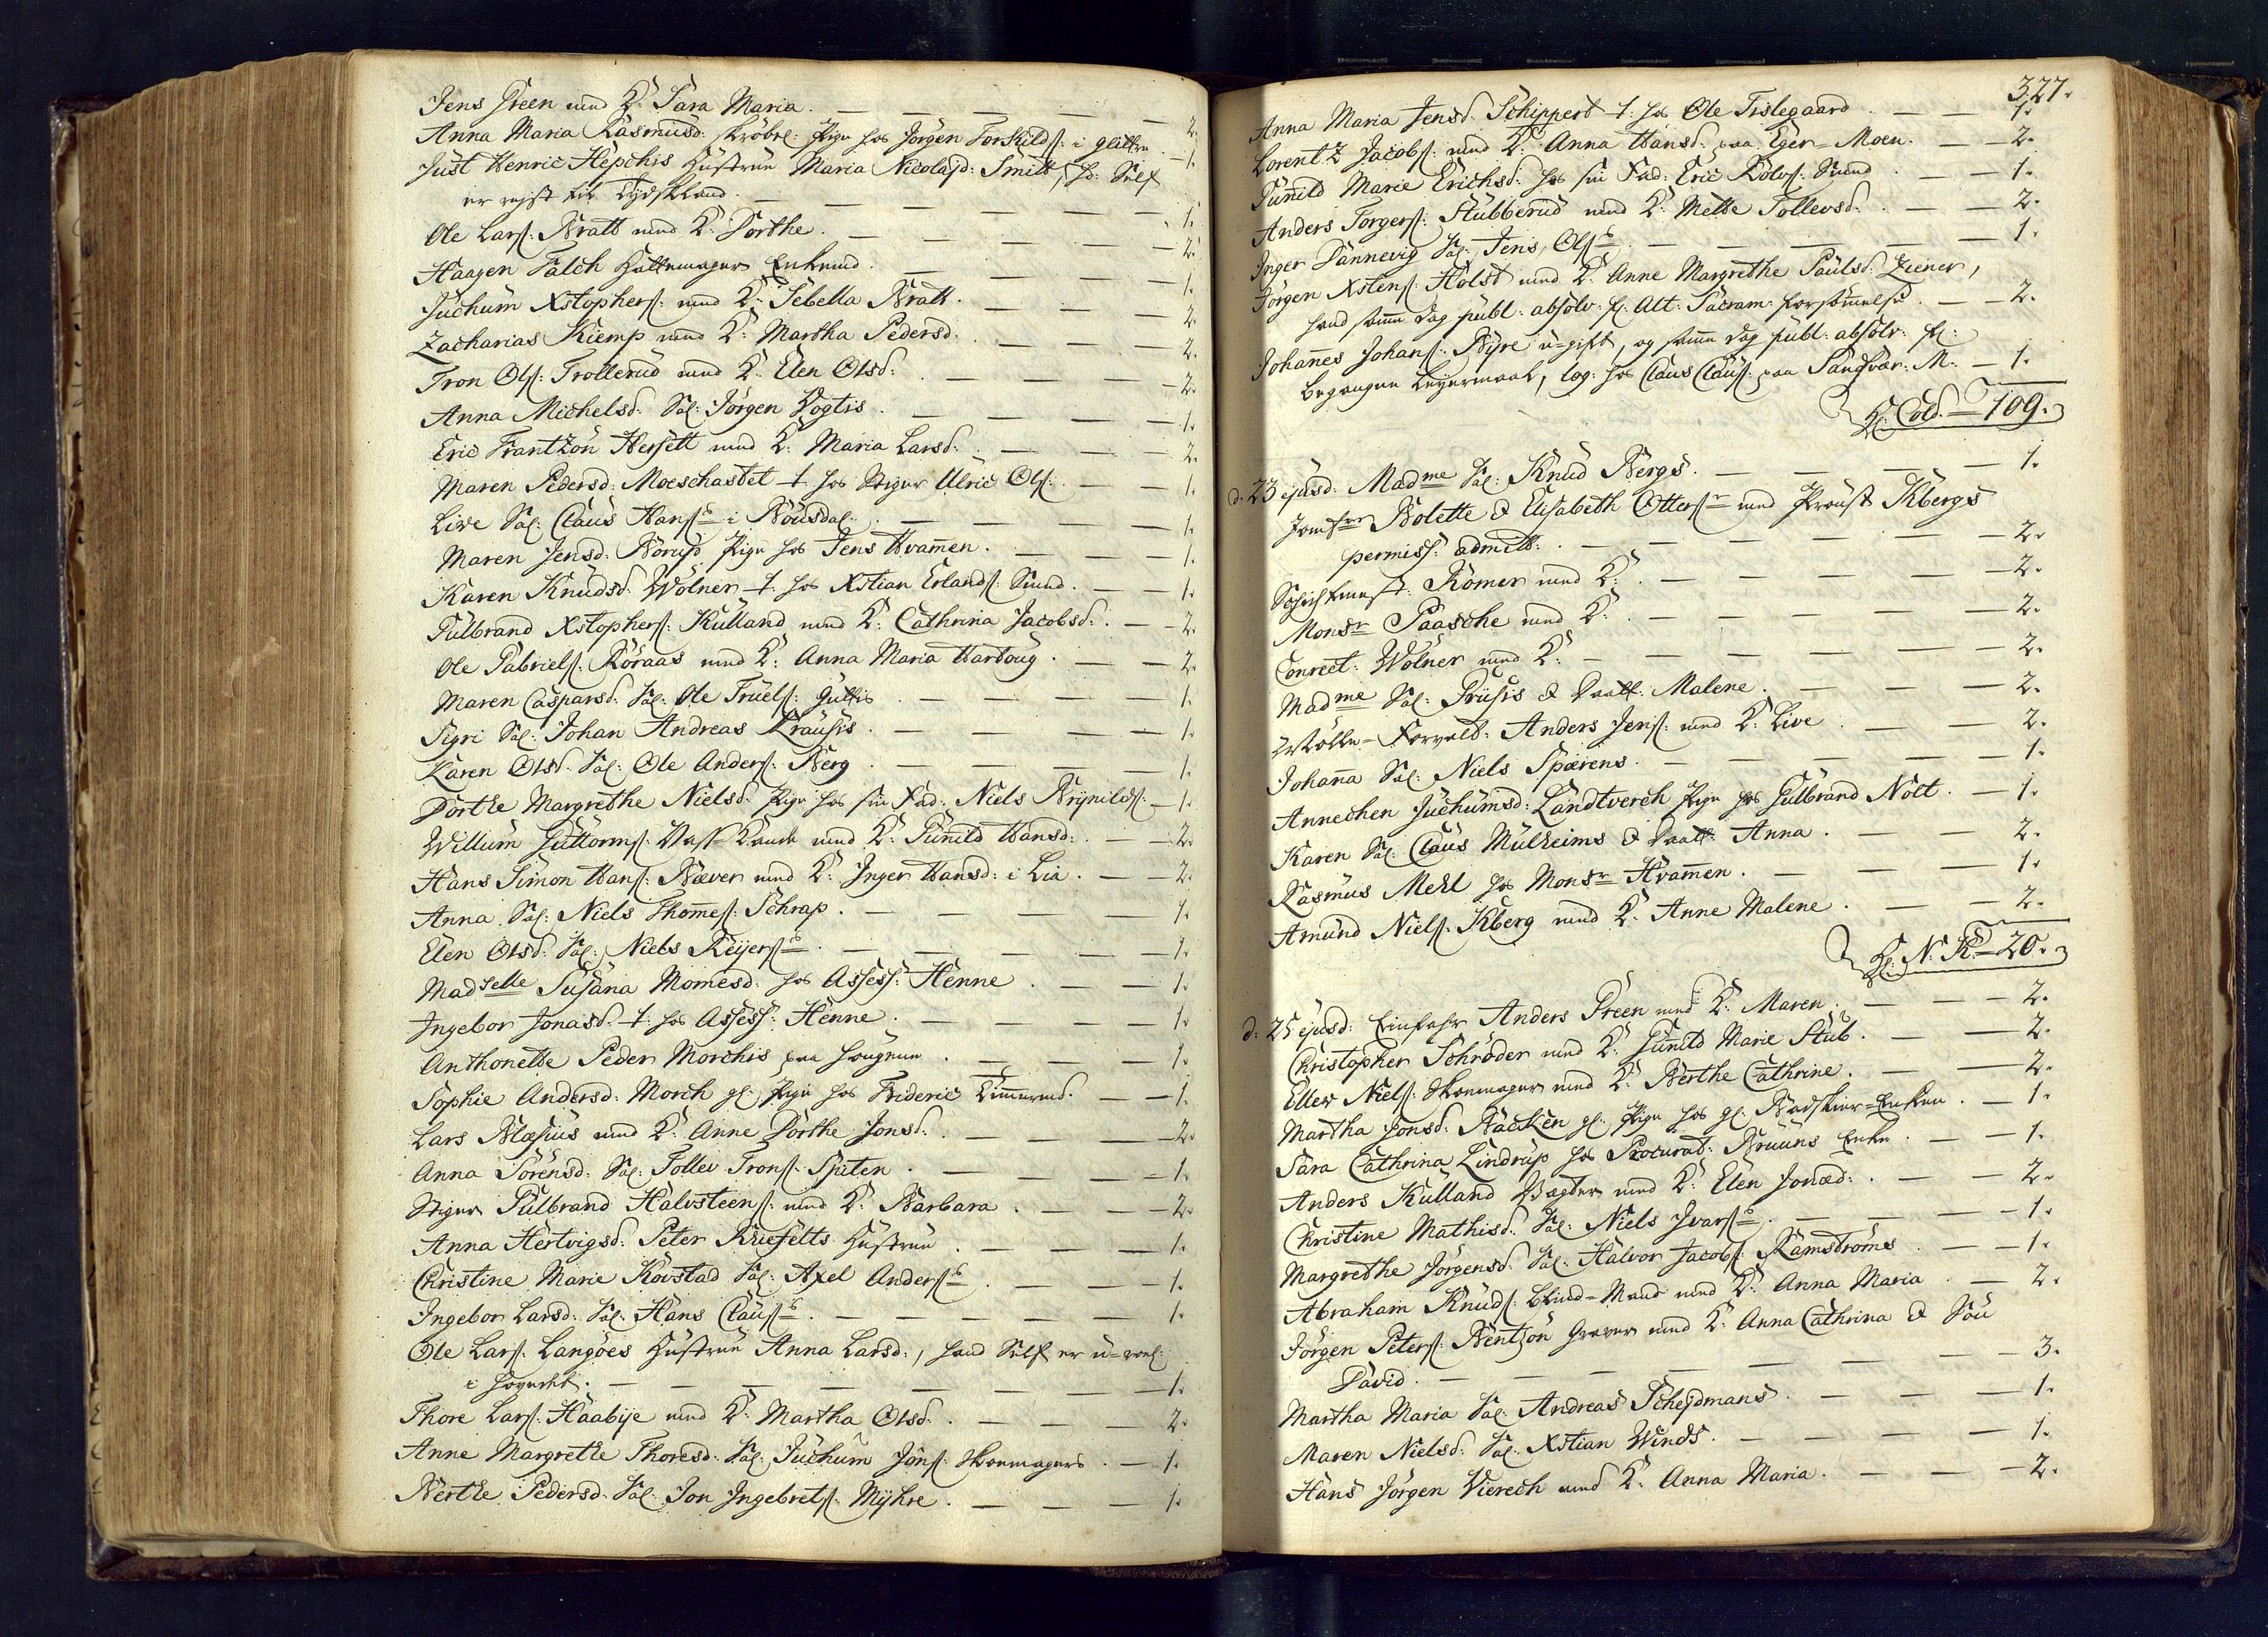 Jens Green med K: Sara Maria. — 2.
Anna Maria Rasmusd: Pige hos Jörgen Torkilds: i — 1.
Just Henric Hepchis Hustrue Maria Nicolajd: Smitt, h: Self
er rejst til Tydskland. — 1.
Ole Lars: Bratt med K: Dorthe. — 2.
Haagen Falch Hattemager Enkemd. — 1.
Juchum Xstophers: med K: Sebella Bratt. — 2.
Zacharias Kiemp med K: Martha Pedersd. — 2.
Tron Ols: Trollerud med K: Elen Olsd: — 2.
Anna Michelsd: Sal: Jörgen Vogtis. — 1.
Eric Frantzön Hersett med K: Maria Larsd: — 2.
Maren Pedersd: Moeschastet t. hos Stiger Ulric Ols: — 1.
Live Sal: Claus Hans: i Bousdal. — 1.
Maren Jensd: Borup Pige hos Jens Hvamen. — 1.
Karen Knudsd: Wölner t: hos Xstian Erlands: Smed. — 1.
Gulbrand Xstophers: Kulland med K: Cathrina Jacobsd: — 2.
Ole Gabriels: Röraas med K: Anna Maria Hartoug. — 2.
Maren Caspersd: Sal: Ole Truels: — 1.
Sigri Sal: Johan Andreas Krausis. — 1.
Karen Olsd: Sal: Ole Anders: Berg. — 1.
Dorthe Margrethe Nielsd: Pige hos sin Fad: Niels Brynilds: — 1.
Willum Guttorms: med K: Gunild Hansd: — 2.
Hans Simon Hans: Bæver med K: Inger Hansd: i Lia. — 2.
Anna Sal: Niels Thomes: Schrap. — 1.
Elen Olsd: Sal: Niels Reijers: — 1.
Madselle Susana Momesd: hos Assess: Henne. — 1.
Ingebor Jonasd: t. hos Assess: Henne. — 1.
Anthonette Peder Morchis paa Haugene. — 1.
Sophie Andersd: Morch gl: Pige hos Frideric — 1.
Lars Blasius med K: Anne Dorthe Jonsd: — 2.
Anna Sörensd: Sal: Tollev Trons: Sputen. — 1.
Stiger Gulbrand Halvsteens: med K: Barbara. — 2.
Anna Hertvigsd: Peter Kriefelts Hustrue. — 1.
Christine Marie Kovstad Sal: Axel Anders: — 1.
Ingebor Larsd: Sal: Hans Claus: — 1.
Ole Lars: Langöes Hustrue Anna Larsd:, hand Self er
i — 1.
Thore Lars: Haabye med K: Martha Olsd: — 2.
Anne Margrethe Thoresd: Sal: Juchum Jöns: Skoemagers. — 1.
Berthe Pedersd: Sal: Jon Ingebrets: Myhre. — 1.
327.
Anna Maria Jensd: Schippert t: hos Ole Tislegaard — 1.
Lorentz Jacobs: med K: Anna Hansd: paa Eger-Moen. — 2.
Gunild Marie Erichsd: hos sin Fad: Eric Rolvs: Smed — 1.
Anders Torgers: Stubberud med K: Mette Tollevsd: — 2.
Inger Dannevig Sal: Jens Ols: — 1.
Jörgen Xstens: Holst med K: Anne Margrethe Paulsd: Ziener,
hand samme dag publ: absolv: for Alt: Sacram: forsömmelse. — 2.
Johanes Johans: Byre u-gift, og samme dag publ: absolv: for
begangne Leyermaal, log: hos Claus Claus: paa Sandsvær: M: — 1.
Cold: — 109.
d: 23 ejusd: Madme Sal: Knud Bergs. — 1.
Jomfrr Bolette & Elisabeth Otters: med Proust Kbergs
permiss: admitt: — 2.
Römer med K: — 2.
Monsr Paasche med K: — 2.
Conrect: Wölner med K: — 2.
Madme Sal: Priisis & Daatt: Malene. — 2.
Forvalt: Anders Jens: med K: Live — 2.
Johana Sal: Niels Spærens. — 1.
Annechen Juchumsd: Landtverch Pige hos Gulbrand Nott. — 1.
Karen Sal: Claus Mulheims & Daatt: Anna. — 2.
Rasmus Mehl hos Monsr Hvamen. — 1.
Amund Niels: Kberg med K: Anne Malene. — 2.
N: K: — 20.
d: 25 ejusd: Einfahr Anders Green med K: Maren. — 2.
Christopher Schröder med K: Gunild Marie Stub. — 2.
Ellev Niels: Skoemager med K: Berthe Cathrine. — 2.
Martha Jonsd: Backen gl: Pige hos gl: Badskier-Enken. — 1.
Sara Cathrina Lindrup hos Procurat: Bruuns Enke. — 1.
Anders Kulland Vægter med K: Elen Jonæd: — 2.
Christine Mathisd: Sal: Niels Ivars: — 1.
Margrethe Jörgensd: Sal: Halvor Jacobs: Ramströms — 1.
Abraham Knuds: Blind-Mand med K: Anna Maria. — 2.
Jörgen Peters: Bentzön Graver med K: Anna Cathrina & Sön
David. — 3.
Martha Maria Sal: Andreas Schejdmans. — 1.
Maren Nielsd: Sal: Xstian Winds. — 1.
Hans Jörgen Vierech med K: Anna Maria. — 2.